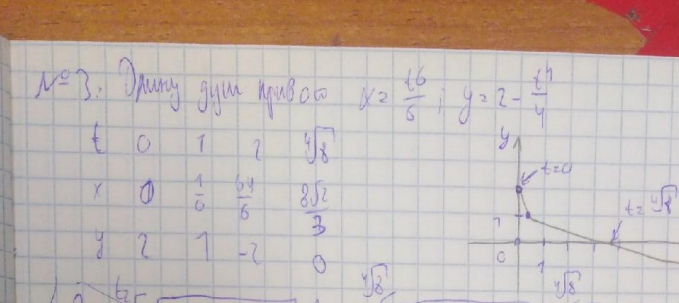 № 3. Длину дуги кривой x = t6/6 ; y = 2 - t4/4
t 0 1 2 ∜8
x 0 1/6 64/6 8√2/3
y 2 1 -2 0
y
t=0
t=∜8
1
0 1
∜8 ∜8